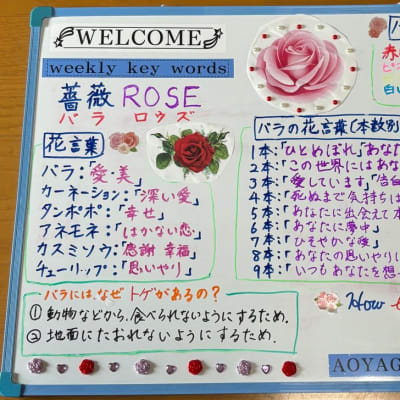 WELCOME
weekly key words
薔薇 ROSE
バラ ロウズ
花言葉
バラ:「愛・美」
カーネーション:「深い愛」
タンポポ:「幸せ」
アネモネ:「はかない恋」
カスミソウ:「感謝 幸福」
チューリップ:「思いやり」
バラには、なぜ トゲがあるの?
① 動物などから、食べられないようにするため.
② 地面にたおれないようにするため.
バラの花言葉(本数別
1本:「ひとめぼれ」「あな
2本:「この世界にはあな
3本:「愛しています」「告白
4本:「死ぬまで気持ちは
5本:「あなたに出会えて本
6本:「あなたに夢中」
7本:「ひそやかな愛」
8本:「あなたの思いやりに
9本:「いつもあなたを想
How
AOYAG